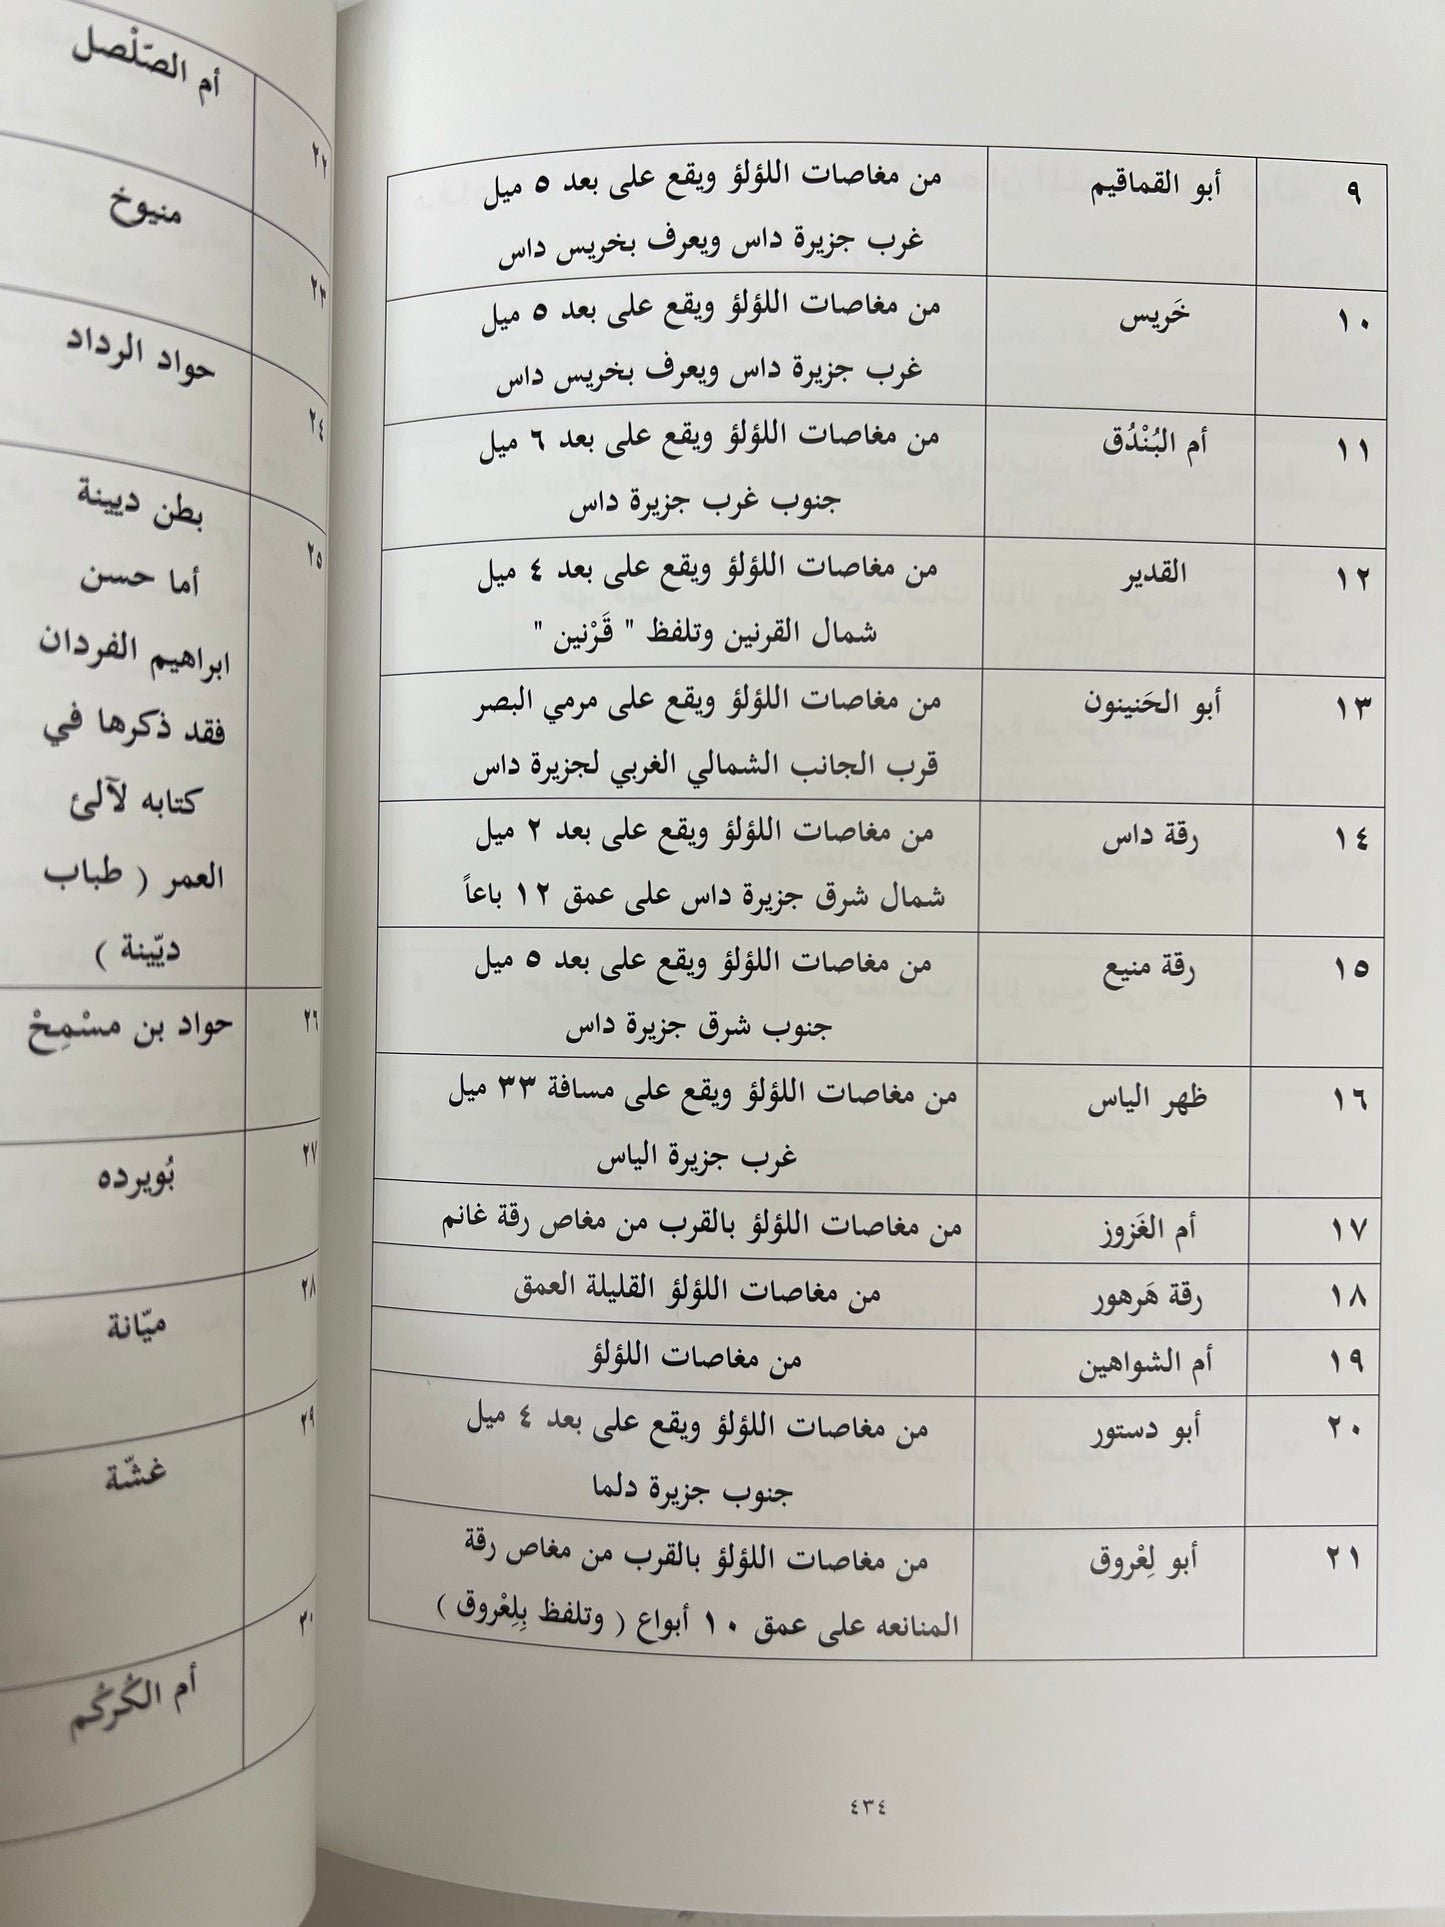 ٩ أبو القماقيم من مغاصات اللؤلؤ ويقع على بعد ٥ ميل
غرب جزيرة داس ويعرف بخريس داس
١٠ خَريس من مغاصات اللؤلؤ ويقع على بعد ٥ ميل
غرب جزيرة داس ويعرف بخريس داس
١١ أم البُنْدُق من مغاصات اللؤلؤ ويقع على بعد ٦ ميل
جنوب غرب جزيرة داس
١٢ القدير من مغاصات اللؤلؤ ويقع على بعد ٤ ميل
شمال القرنين وتلفظ " قَرْنين "
١٣ أبو الحَنينون من مغاصات اللؤلؤ ويقع على مرمي البصر
قرب الجانب الشمالي الغربي لجزيرة داس
١٤ رقة داس من مغاصات اللؤلؤ ويقع على بعد ٢ ميل
شمال شرق جزيرة داس على عمق ١٢ باعاً
١٥ رقة منيع من مغاصات اللؤلؤ ويقع على بعد ٥ ميل
جنوب شرق جزيرة داس
١٦ ظهر الياس من مغاصات اللؤلؤ ويقع على مسافة ٣٣ ميل
غرب جزيرة الياس
١٧ أم الغَزوز من مغاصات اللؤلؤ بالقرب من مغاص رقة غانم
١٨ رقة هَرهور من مغاصات اللؤلؤ القليلة العمق
١٩ أم الشواهين من مغاصات اللؤلؤ
٢٠ أبو دستور من مغاصات اللؤلؤ ويقع على بعد ٤ ميل
جنوب جزيرة دلما
٢١ أبو لِعْروق من مغاصات اللؤلؤ بالقرب من مغاص رقة
المنانعه على عمق ١٠ أبواع ( وتلفظ بِلِعْروق )
٤٣٤
أم الصّلْصل
٢٢
منيوخ
٢٣
حواد الرداد
٢٤
بطن ديينة
٢٥
أما حسن
ابراهيم الفردان
فقد ذكرها في
كتابه لآلئ
العمر ( طباب
ديّينة )
٢٦ حواد بن مسْمِحْ
٢٧
بُويرده
٢٨
ميّانة
٢٩
غشّة
٣٠
أم الكُركُم